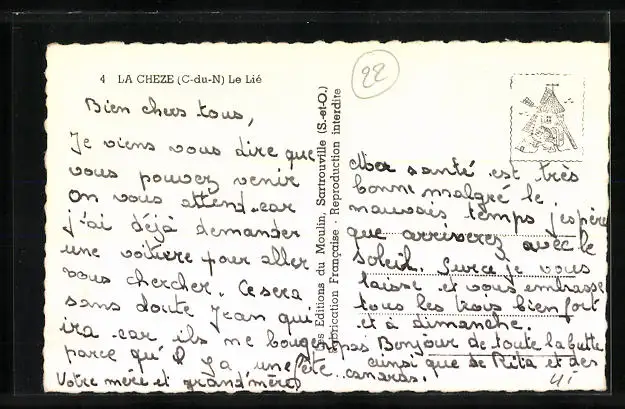 4 LA CHEZE (C-du-N) Le Lié
22
Bien chers tous,
Je viens vous dire que
vous pouvez venir
on vous attend. car
j'ai déjà demander
une voiture pour aller
vous chercher. Ce sera
sans doute Jean qui
ira car ils ne bougeront pas
parce qu'il y a une fête
Votre mère et grand'mère
Les Editions du Moulin, Sartrouville (S.-et-O.)
Fabrication Française - Reproduction interdite
Ma santé est très
bonne malgré le
mauvais temps j'espère
que arriverez avec le
soleil. Surce je vous
laisse et vous embrasse
tous les trois bien fort
et à dimanche.
Bonjour de toute la butte
ainsi que de Rita et des
canards.